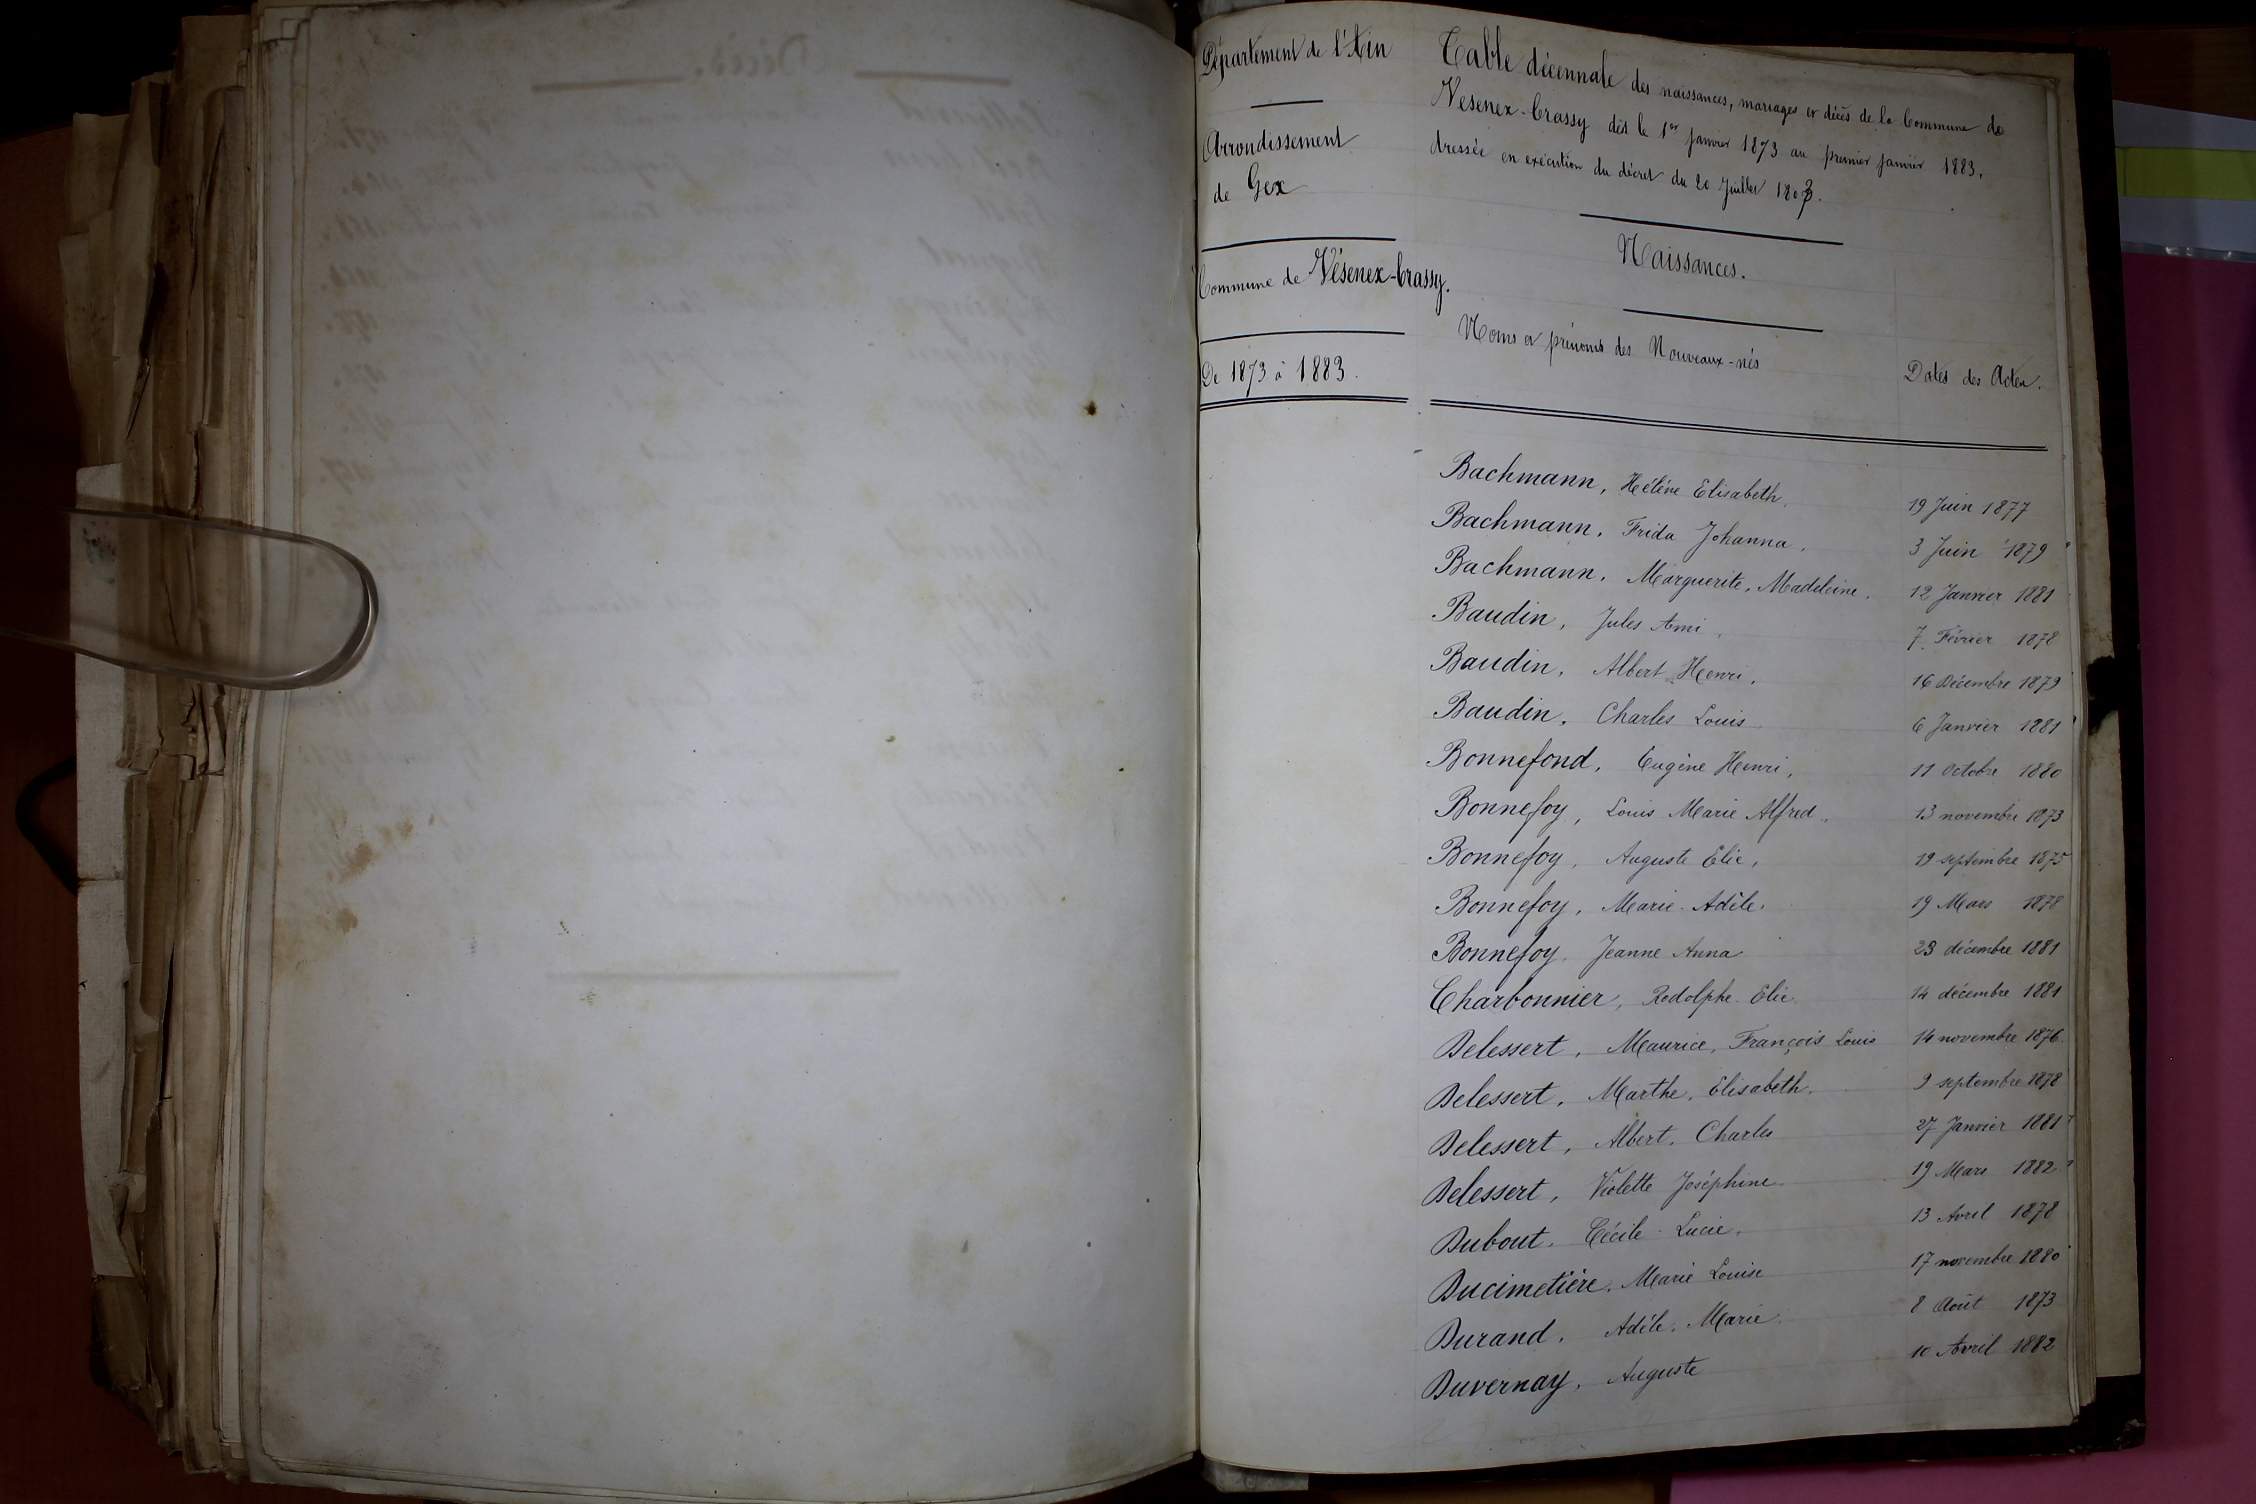 Département de l'Ain
Arrondissement
de Gex
Commune de Vésenex-Crassy.
De 1873 à 1883.
Table décennale des naissances, mariages et décès de la Commune de
Vesenex-Crassy dès le 1er Janvier 1873 au premier Janvier 1883,
dressée en exécution du décret du 20 Juillet 1807.
Naissances.
Noms et prénoms des Nouveaux-nés
Dates des Actes.
Bachmann, Hélène Elisabeth. 19 Juin 1877
Bachmann, Frida Johanna. 3 Juin 1879
Bachmann, Marguerite, Madeleine. 12 Janvier 1881
Baudin, Jules Ami, 7 Février 1878
Baudin, Albert Henri, 16 Décembre 1879
Baudin, Charles Louis 6 Janvier 1881
Bonnefond, Eugène Henri, 11 Octobre 1880
Bonnefoy, Louis Marie Alfred. 13 novembre 1873
Bonnefoy, Auguste Elie, 19 septembre 1875
Bonnefoy, Marie-Adèle. 19 Mars 1878
Bonnefoy. Jeanne Anna 23 décembre 1881
Charbonnier, Rodolphe Elie 14 décembre 1881
Delessert, Maurice, François Louis 14 novembre 1876
Delessert, Marthe, Elisabeth. 9 septembre 1878
Delessert, Albert, Charles 27 Janvier 1881
Delessert, Violette Joséphine 19 Mars 1882
Dubout. Cécile-Lucie. 13 Avril 1878
Ducimetière. Marie Louise 17 novembre 1880
Durand, Adèle, Marie 8 Août 1873
Duvernay, Auguste 10 Avril 1882